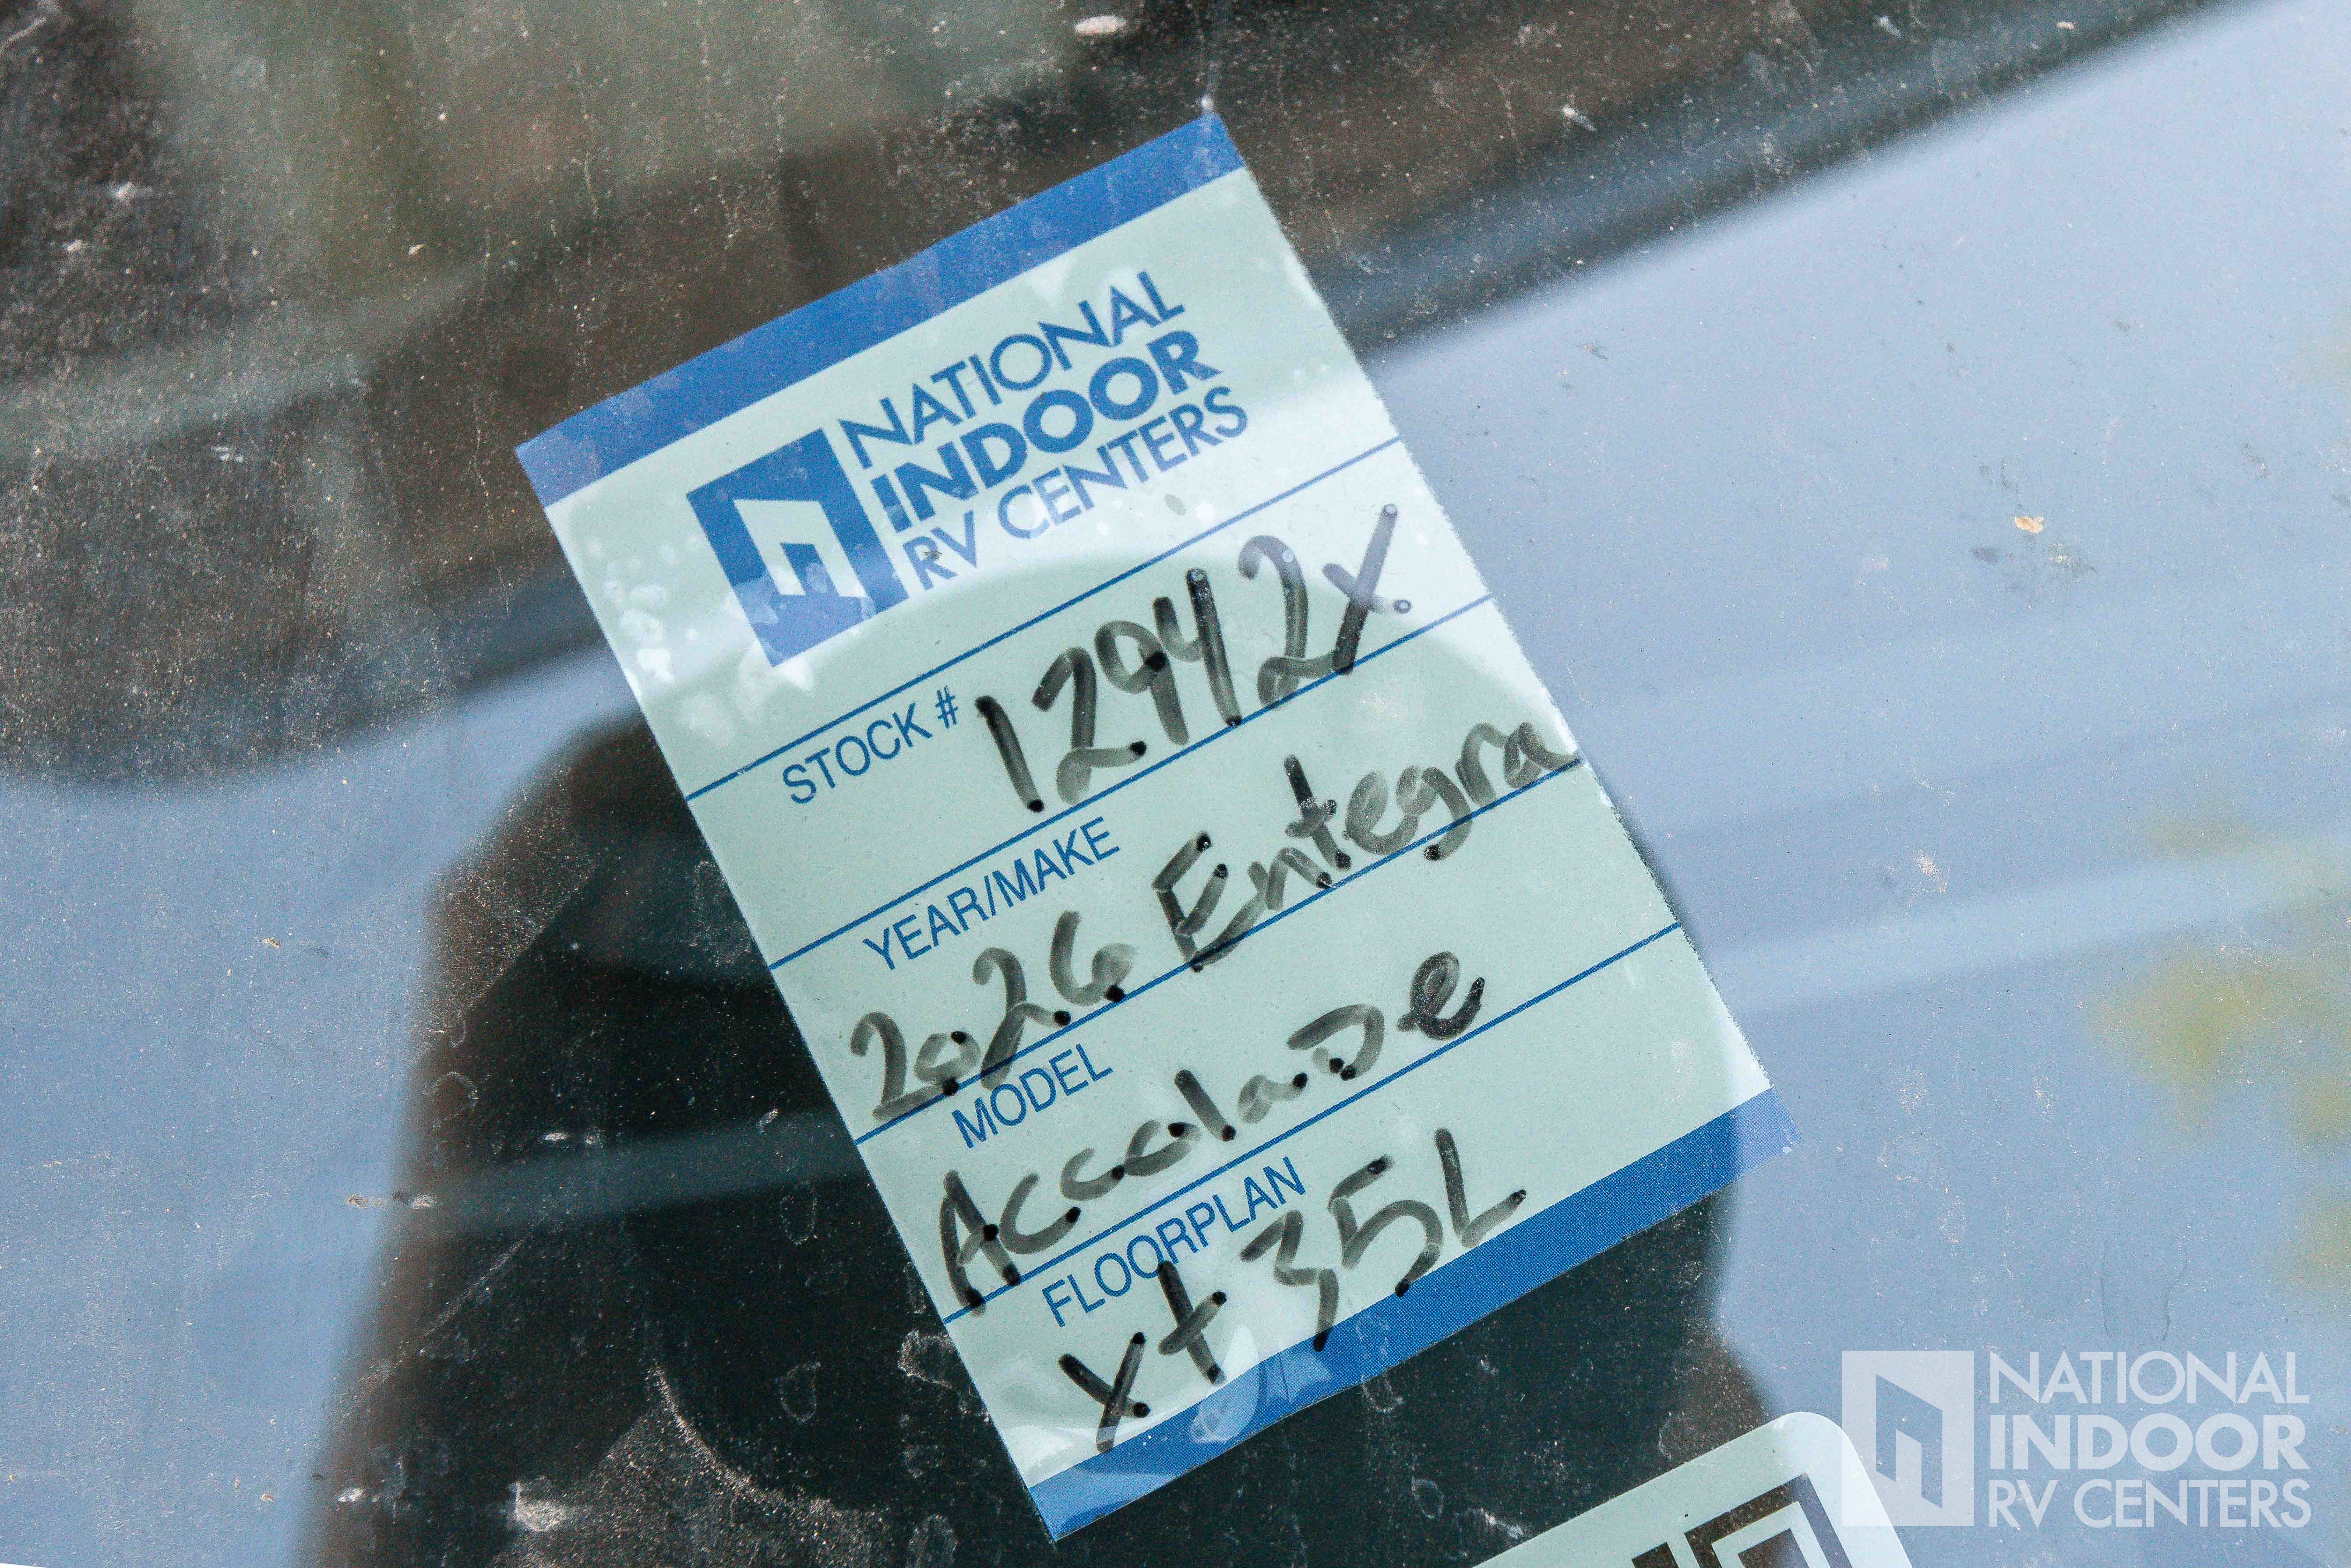 NATIONAL
INDOOR
RV CENTERS
STOCK # 12942x
YEAR/MAKE
2026 Entegra
MODEL
AccolaDe
FLOORPLAN
xt 35L
NATIONAL
INDOOR
RV CENTERS